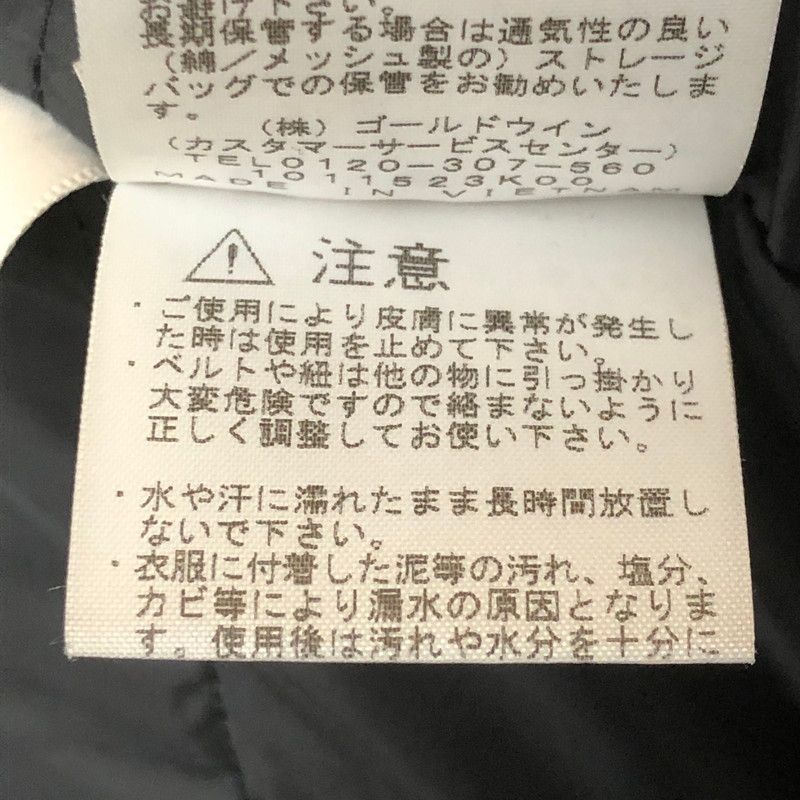 お避け下さい。
長期保管する場合は通気性の良い
(綿／メッシュ製の)ストレージ
バッグでの保管をお勧めいたしま
す。
(株)ゴールドウイン
(カスタマーサービスセンター)
TEL0120-307-560
1011523K00
MADE IN VIETNAM
注意
・ご使用により皮膚に異常が発生し
た時は使用を止めて下さい。
・ベルトや紐は他の物に引っ掛かり
大変危険ですので絡まないように
正しく調整してお使い下さい。
・水や汗に濡れたまま長時間放置し
ないで下さい。
・衣服に付着した泥等の汚れ、塩分、
カビ等により漏水の原因となりま
す。使用後は汚れや水分を十分に